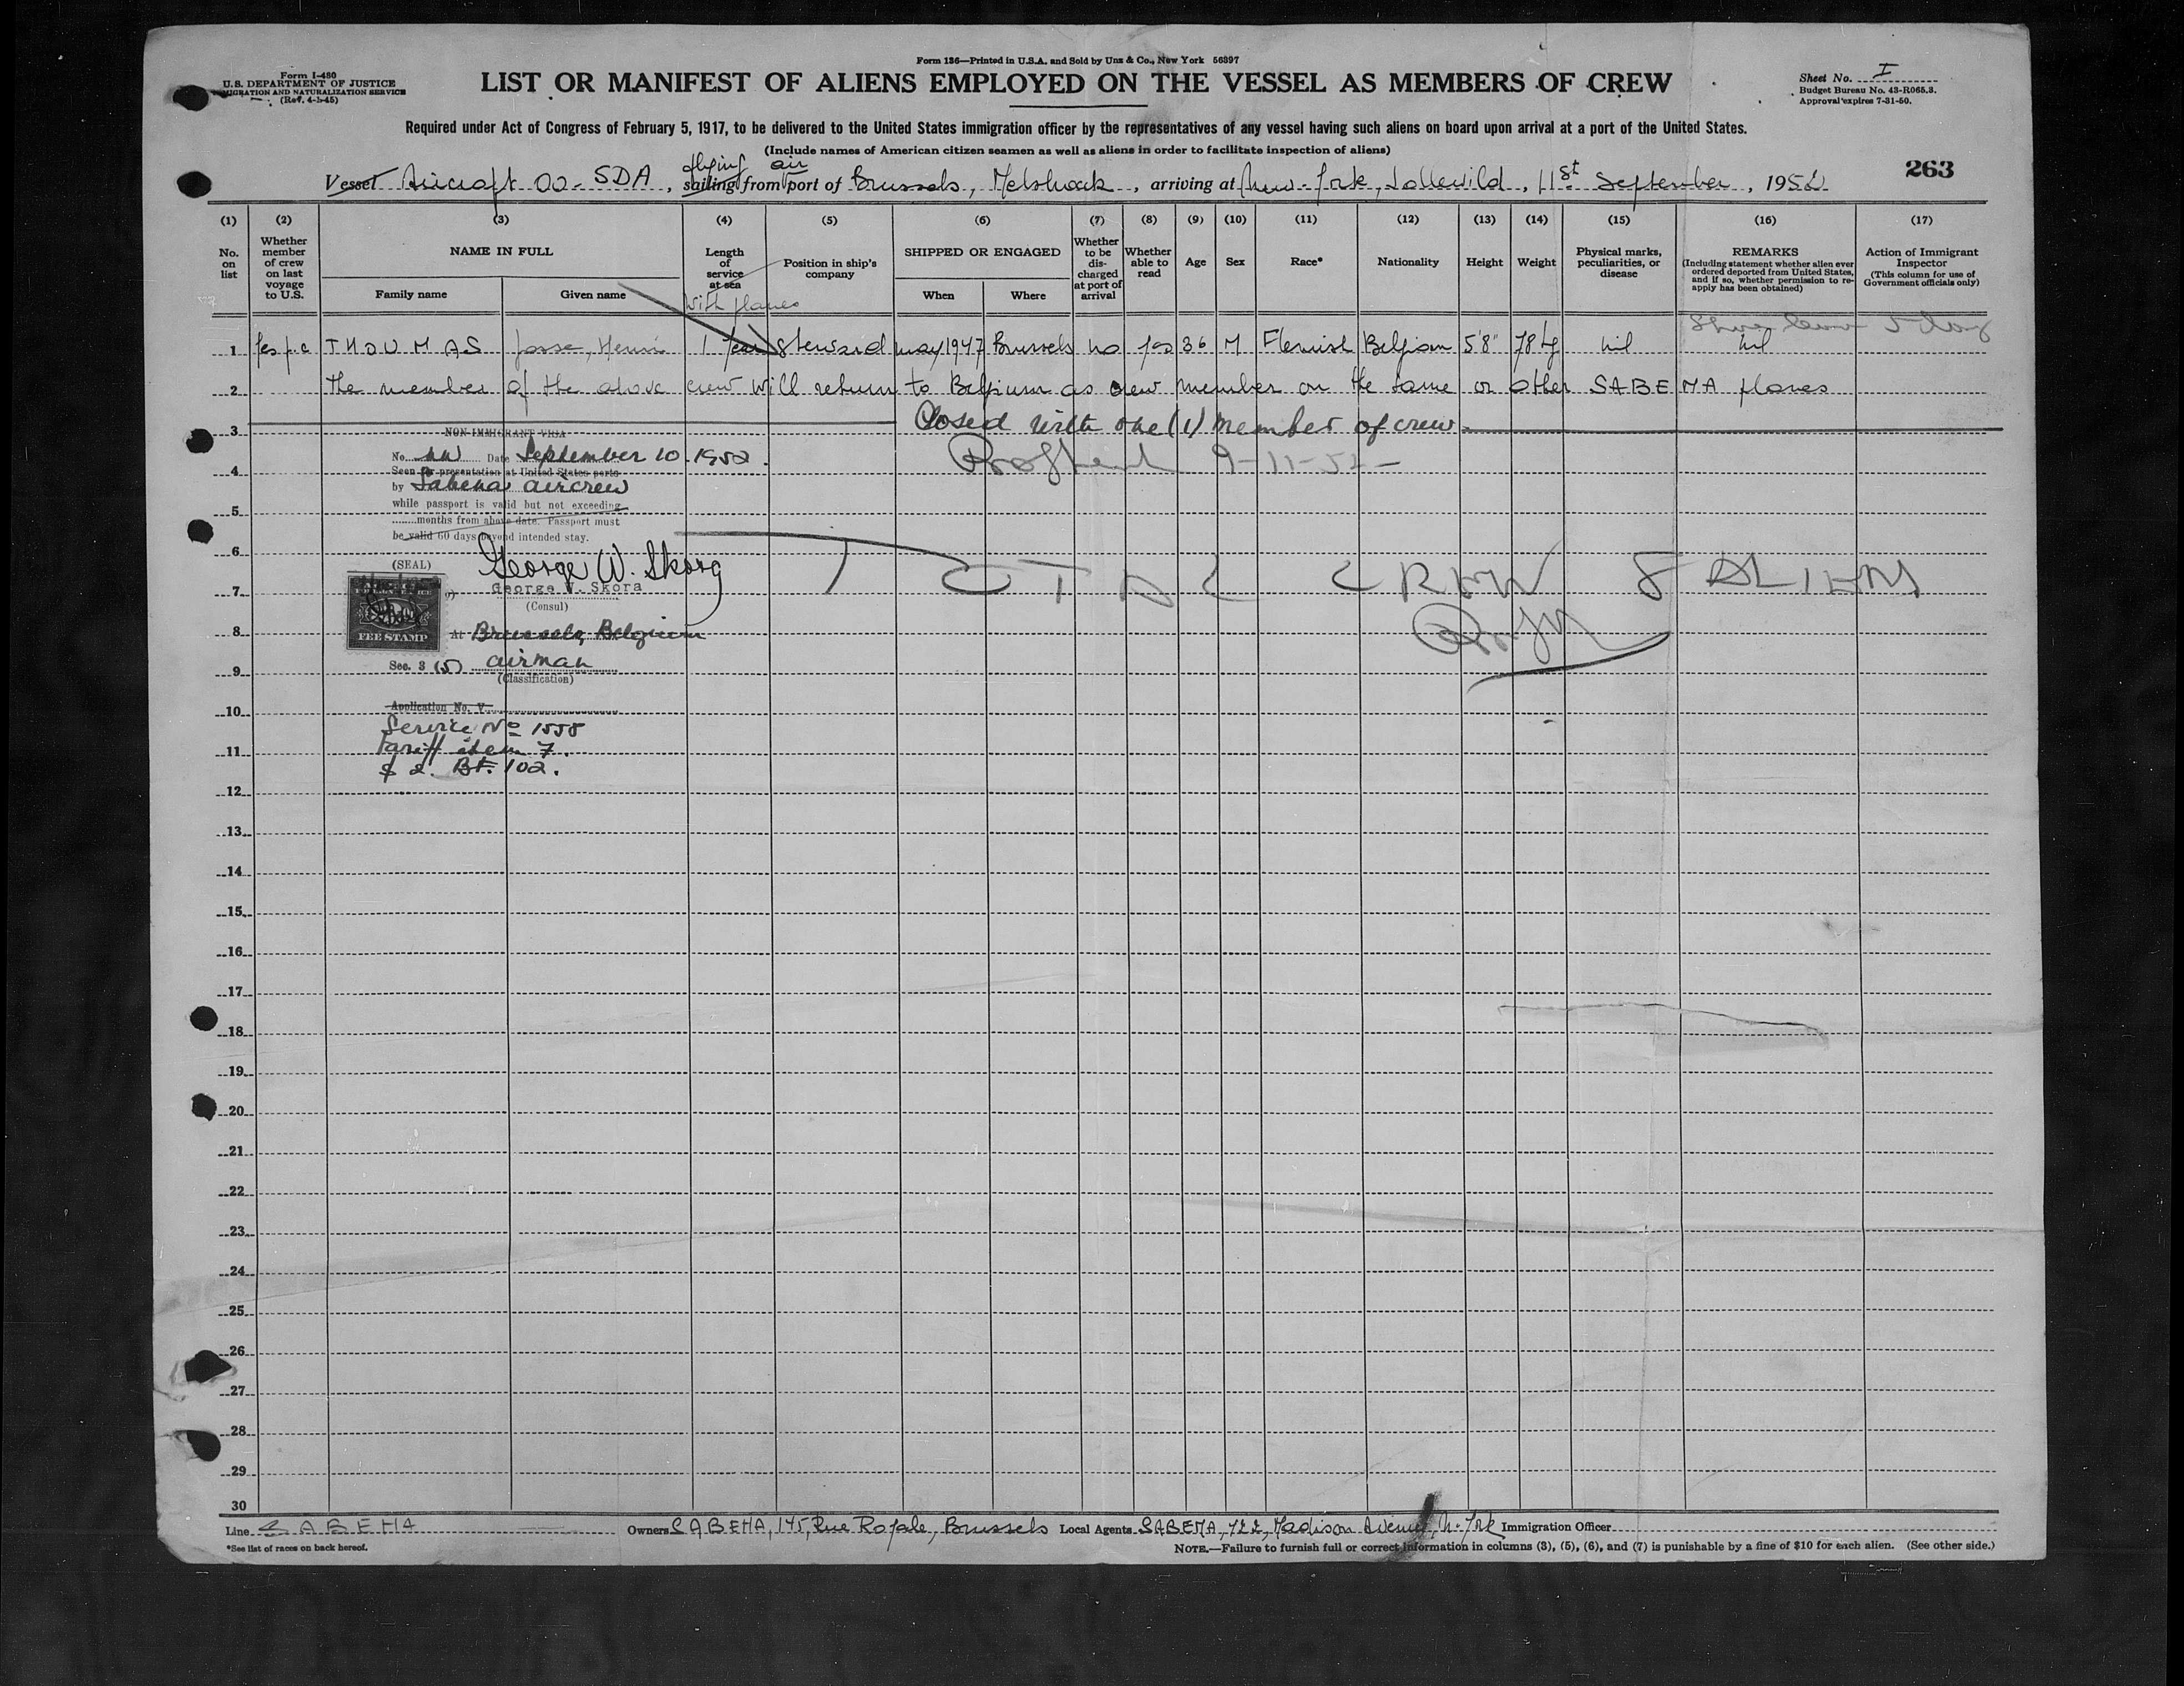 Form 136—Printed in U.S.A. and Sold by Unz & Co., New York 56897
Form I-480
U.S. DEPARTMENT OF JUSTICE
IMMIGRATION AND NATURALIZATION SERVICE
(Rev. 4-1-45)
LIST OR MANIFEST OF ALIENS EMPLOYED ON THE VESSEL AS MEMBERS OF CREW
Sheet No. I
Budget Bureau No. 43-R065.3.
Approval expires 7-31-50.
Required under Act of Congress of February 5, 1917, to be delivered to the United States immigration officer by the representatives of any vessel having such aliens on board upon arrival at a port of the United States.
(Include names of American citizen seamen as well as aliens in order to facilitate inspection of aliens)
263
flying air
Vessel Aircraft OO-SDA, sailing from port of Brussels, Melsbroek, arriving at New-York, Idlewild, 11st September, 1952
(1) (2) (3) (4) (5) (6) (7) (8) (9) (10) (11) (12) (13) (14) (15) (16) (17)
No. on list
Whether member of crew on last voyage to U.S.
NAME IN FULL
Family name
Given name
Length of service at sea
with planes
Position in ship's company
SHIPPED OR ENGAGED
When
Where
Whether to be discharged at port of arrival
Whether able to read
Age
Sex
Race*
Nationality
Height
Weight
Physical marks, peculiarities, or disease
REMARKS
(Including statement whether alien ever ordered deported from United States, and if so, whether permission to re-apply has been obtained)
Action of Immigrant Inspector
(This column for use of Government officials only)
1 Yes THOUMAS Josse, Henri 1 Year Steward may 1947 Brussels no yes 36 M Flemish Belgian 5'8" 78 kg nil nil
2 the member of the above crew will return to Belgium as crew member on the same or other SABENA planes
3 Closed with one (1) member of crew.
NON-IMMIGRANT VISA
9-11-52
No. Date September 10. 1952.
4
Seen for presentation at United States ports
by Sabena aircrew
while passport is valid but not exceeding
5
months from above date. Passport must
be valid 60 days beyond intended stay.
6
(SEAL)
George W. Skora
TOTAL CREW 8 ALIENS
7
George W. Skora
(Consul)
FEE STAMP
8
At Brussels, Belgium
Sec. 3 (5) airman
9
(Classification)
Application No. V
10
Service No 1558
Tariff item 7.
11
$ 2. BF. 102.
12
13
14
15
16
17
18
19
20
21
22
23
24
25
26
27
28
29
30
Line SABENA Owners SABENA, 145, Rue Royale, Brussels Local Agents SABENA, 422, Madison Avenue, N. York Immigration Officer
*See list of races on back hereof.
NOTE.—Failure to furnish full or correct information in columns (3), (5), (6), and (7) is punishable by a fine of $10 for each alien. (See other side.)